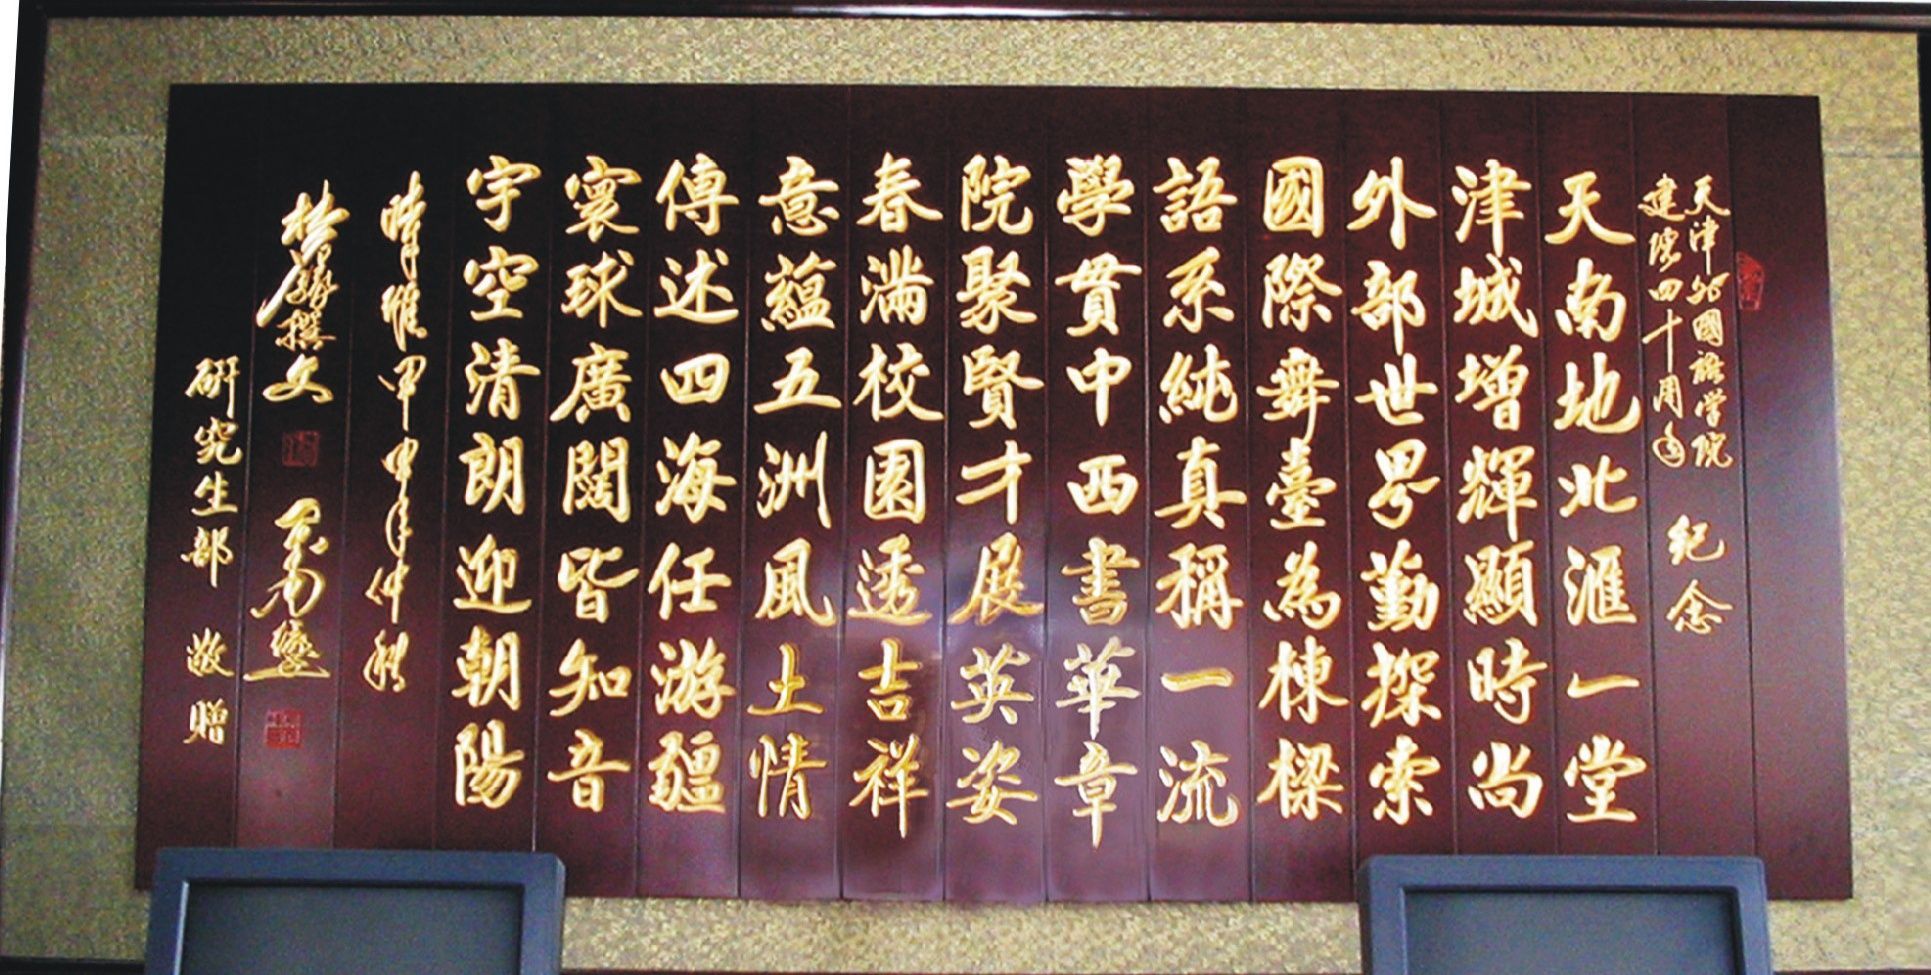 天津外國語学院
建院四十周年
紀念
天南地北滙一堂
津城增輝顯時尚
外部世界勤探索
國際舞臺為棟樑
語系純真稱一流
學貫中西書華章
院聚賢才展英姿
春滿校園透吉祥
意蘊五洲風土情
傳述四海任游疆
寰球廣闊皆知音
宇空清朗迎朝陽
時維甲申年仲秋
撰文
研究生部 敬贈